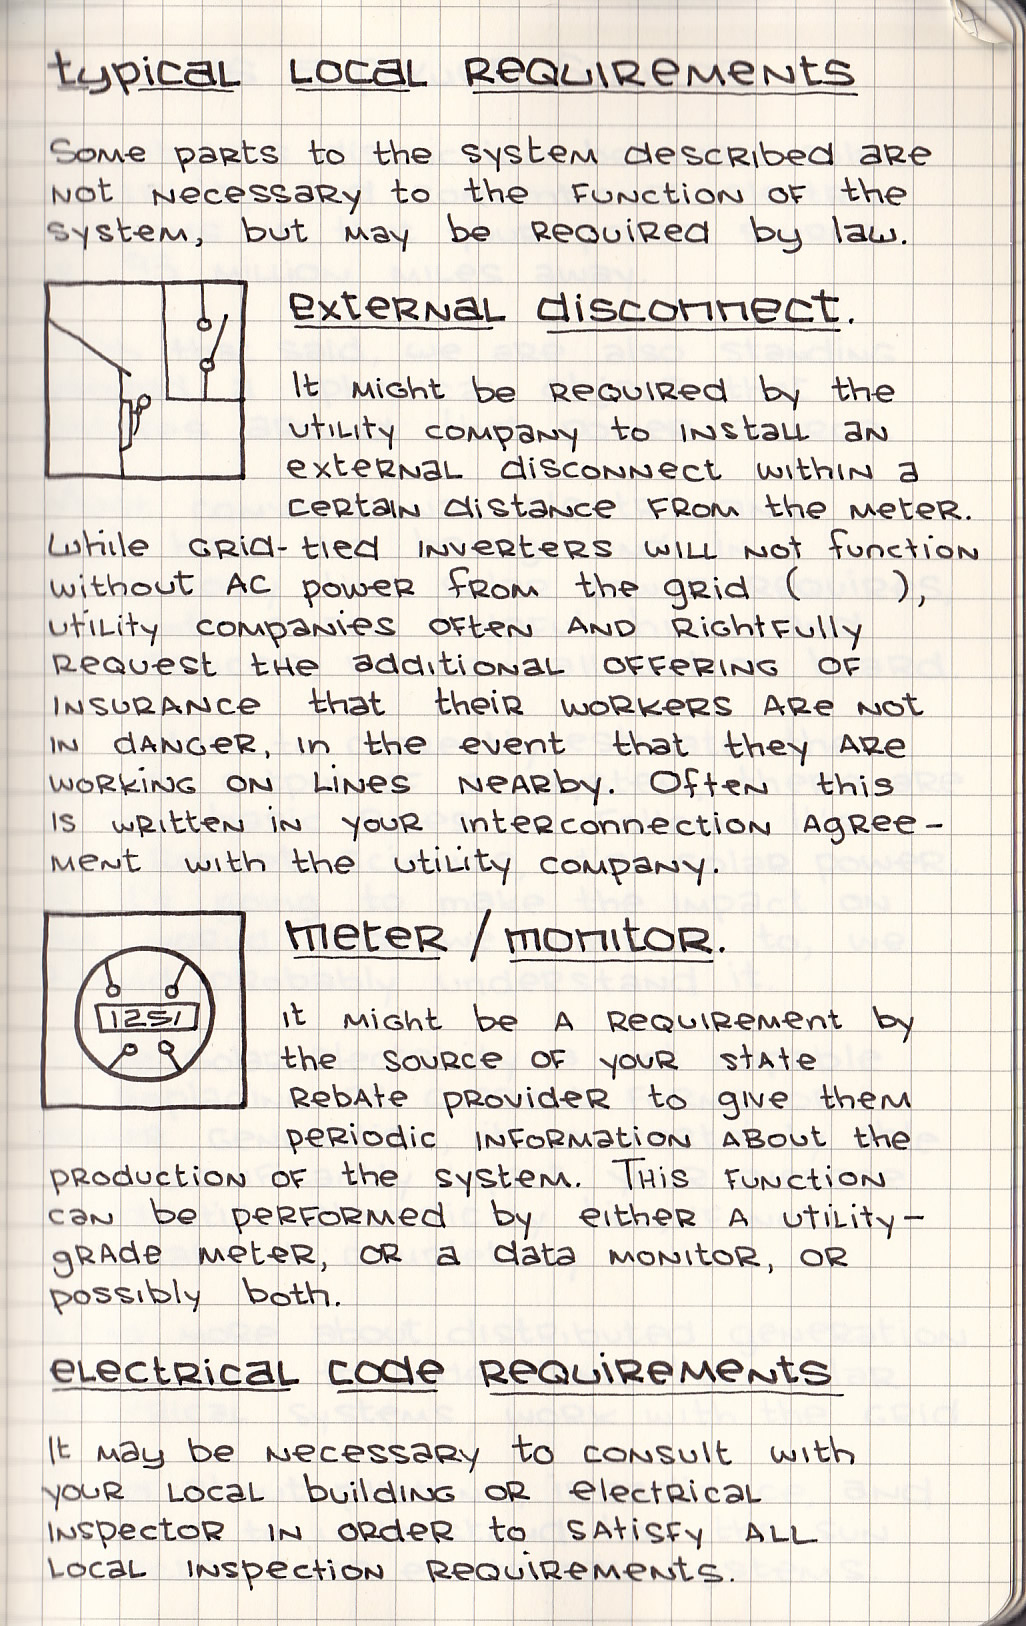 typical Local Requirements
Some parts to the system described are
not necessary to the function of the
system, but may be required by law.
external disconnect.
It might be required by the
utility company to install an
external disconnect within a
certain distance from the meter.
While grid-tied inverters will not function
without AC power from the grid (      ),
utility companies often and rightfully
request the additional offering of
insurance that their workers are not
in danger, in the event that they are
working on lines nearby. Often this
is written in your interconnection agree-
ment with the utility company.
meter / monitor.
1251
it might be a requirement by
the source of your state
rebate provider to give them
periodic information about the
production of the system. This function
can be performed by either a utility-
grade meter, or a data monitor, or
possibly both.
electrical code requirements
It may be necessary to consult with
your local building or electrical
inspector in order to satisfy all
local inspection requirements.